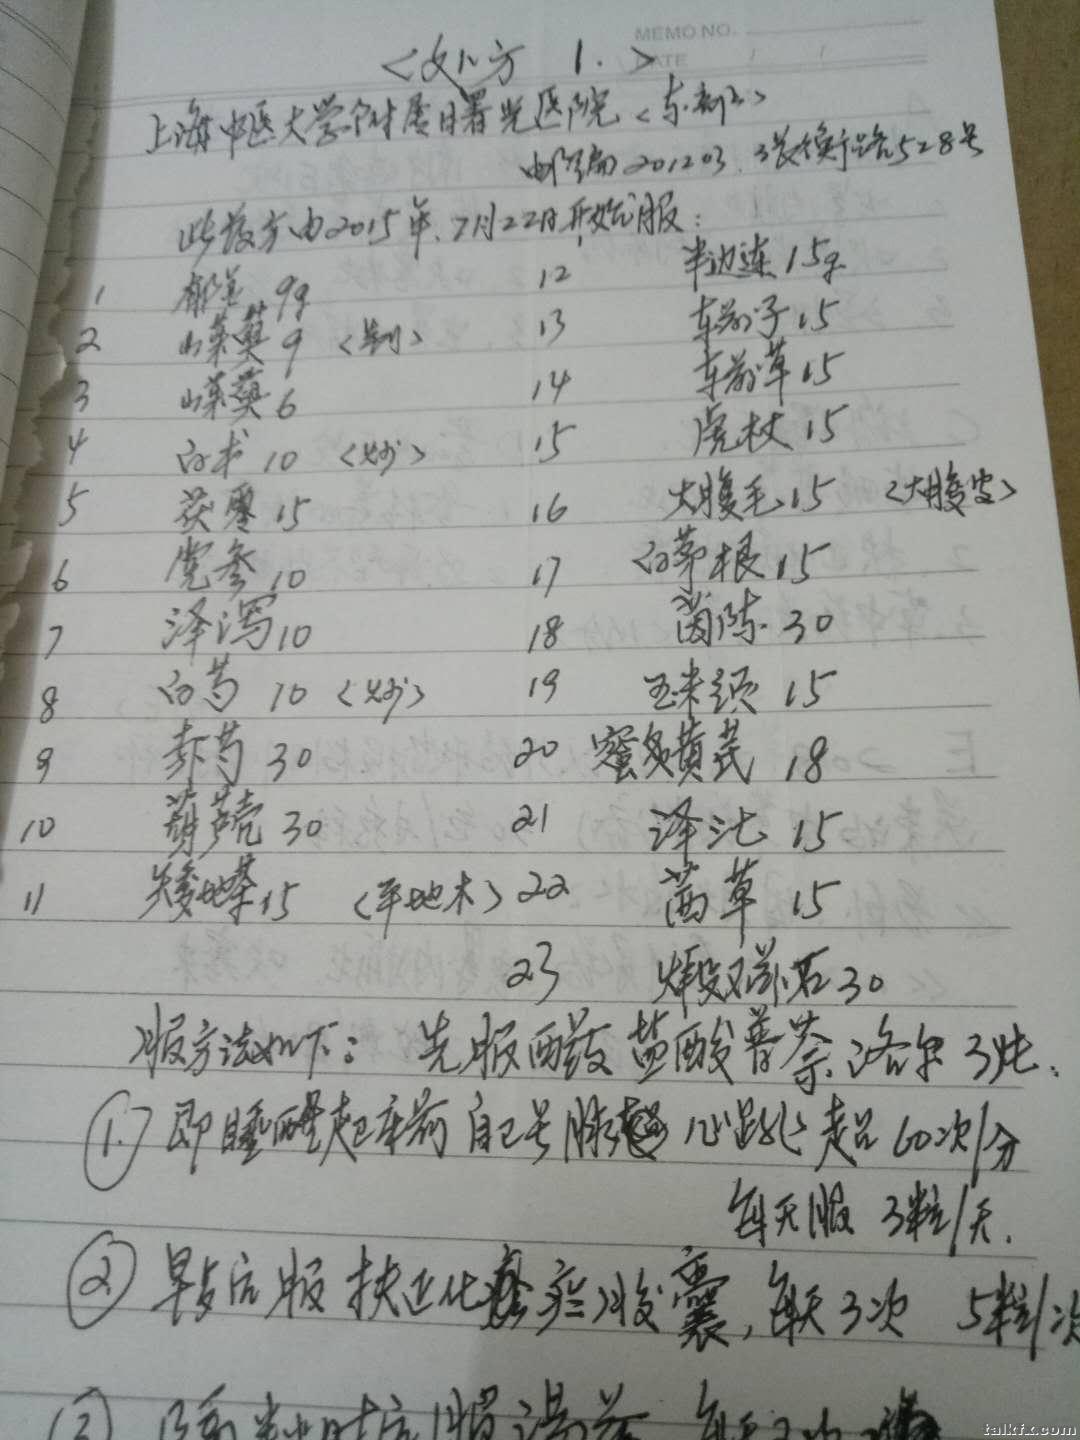 MEMO NO.
DATE / /
<处方 1.>
上海中医大学附属曙光医院<东部>
邮编 201203. 张衡路528号
此药方由2015年.7月22日开始服:
1 郁金 9g 12 半边莲 15g
2 山茱萸 9 <制> 13 车前子 15
3 山茱萸 6 14 车前草 15
4 白术 10 <炒> 15 虎杖 15
5 茯苓 15 16 大腹毛 15 <大腹皮>
6 党参 10 17 白茅根 15
7 泽泻 10 18 茵陈 30
8 白芍 10 <炒> 19 玉米须 15
9 赤芍 30 20 蜜炙黄芪 18
10 葫芦壳 30 21 泽兰 15
11 矮地茶 15 <平地木> 22 茜草 15
23 煅磁石 30
服方法如下: 先服西药 盐酸普萘洛尔 3粒.
① 即睡醒起床前 自己号脉 心跳超 60次/分
每天服 3粒/天.
② 早饭后服 扶正化瘀胶囊, 每天3次 5粒/次
③ 后服汤药 每天2次
talkfx.com